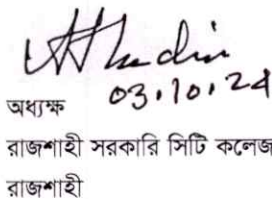 03.10.24
অধ্যক্ষ
রাজশাহী সরকারি সিটি কলেজ
রাজশাহী